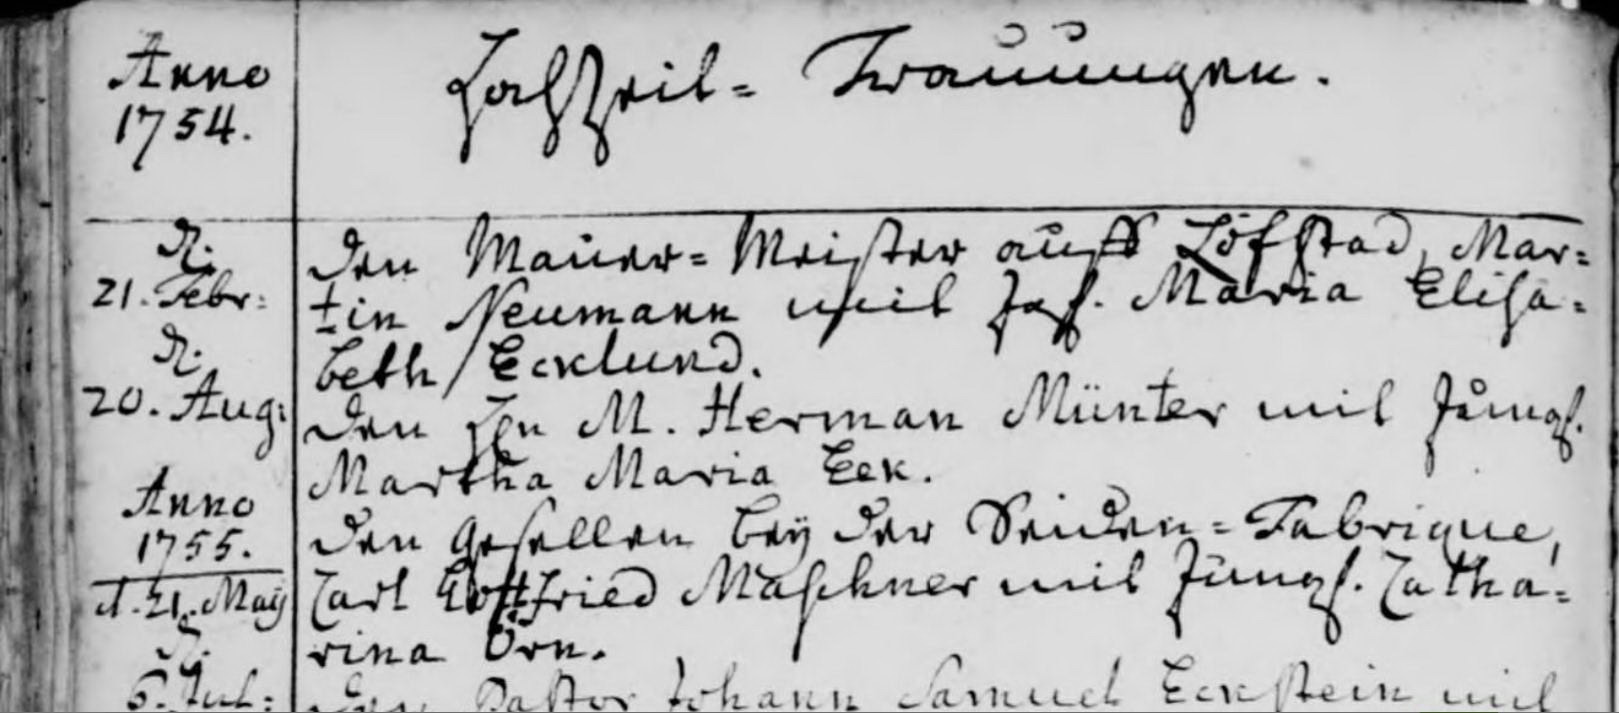 Anno
1754.
Hochzeit= Trauungen.
d.
21. Febr:
den Mauer=Meister auff Löfstad, Mar=
tin Neumann mit Jgf. Maria Elisa=
beth Ecklund.
d.
20. Aug:
den Hrn M. Herman Münter mit Jungf.
Martha Maria Eek.
Anno
1755.
d. 21. May
den Gesellen bey der Seiden=Fabrique,
Carl Gottfried Maschner mit Jungf. Catha=
rina Örn.
d.
6. Jul:
den Pastor Johann Samuel Eckstein mit